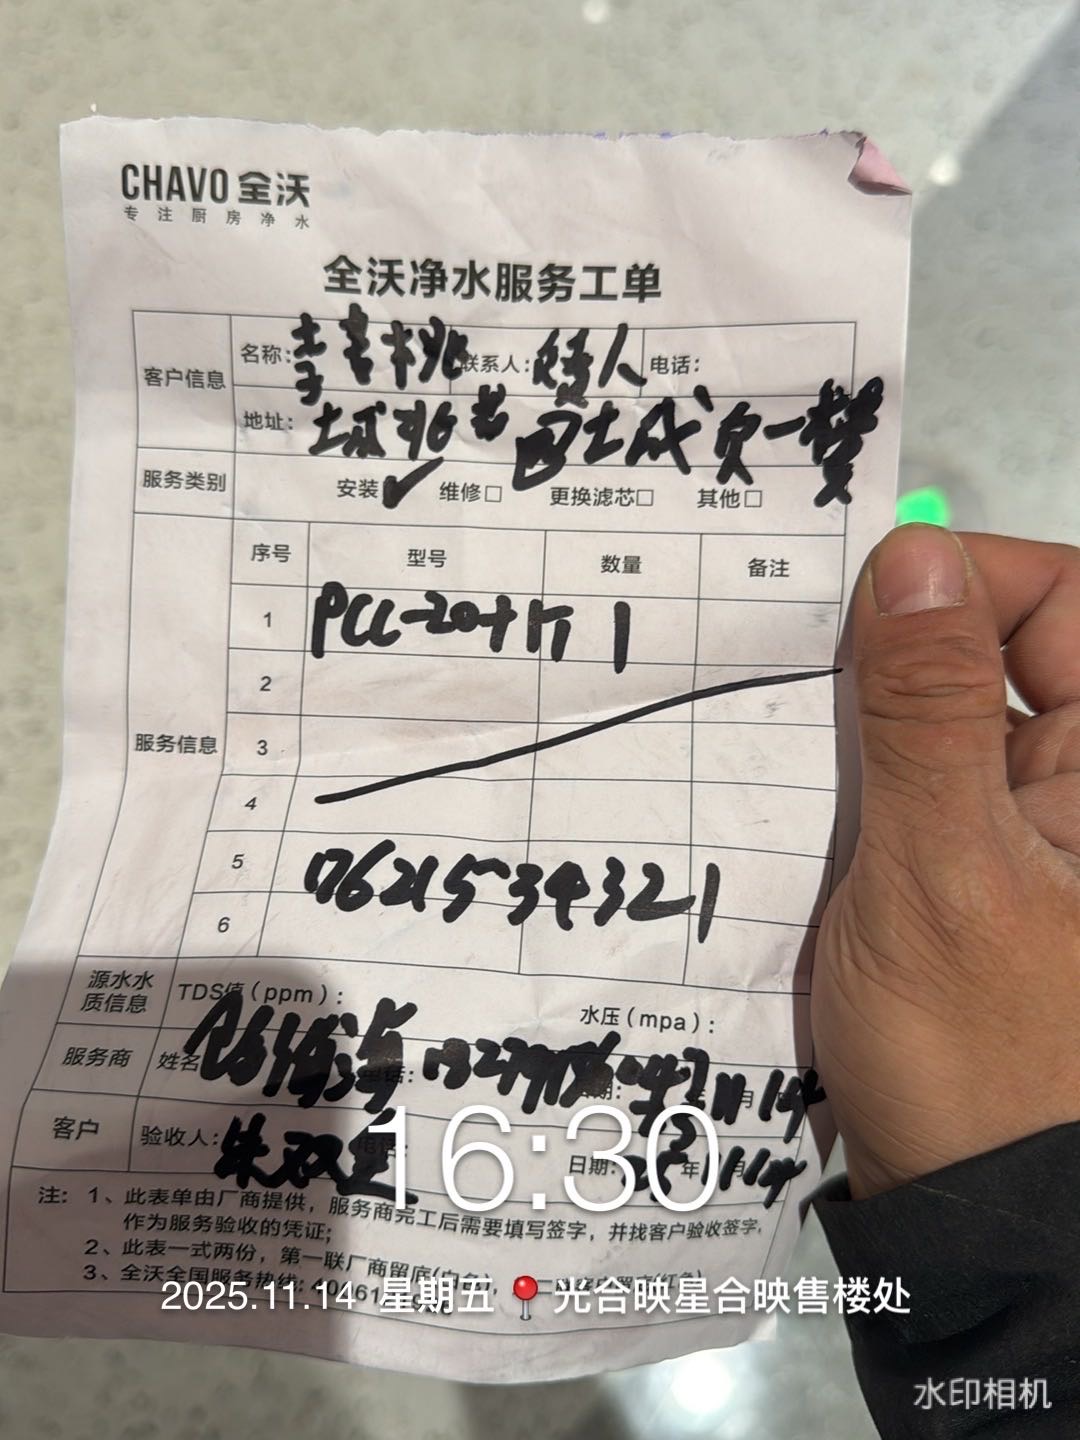 CHAVO 全沃
专注厨房净水
全沃净水服务工单
客户信息 名称: 联系人: 人 电话:
地址: 土城 巴士成负一
服务类别 安装 维修□ 更换滤芯□ 其他□
服务信息 序号 型号 数量 备注
1 PCC-20+ 1
2
3
4
5 07621534321
6
源水水质信息 TDS值(ppm): 水压(mpa):
服务商 姓名 电话: 日期: 年11月14
客户 验收人:朱双 电话: 日期:25年11月14
注: 1、此表单由厂商提供，服务商完工后需要填写签字，并找客户验收签字，
作为服务验收的凭证;
2、此表一式两份，第一联厂商留底(白色)，二联客户留底(红色)
3、全沃全国服务热线:
16:30
2025.11.14 星期五 光合映星合映售楼处
水印相机